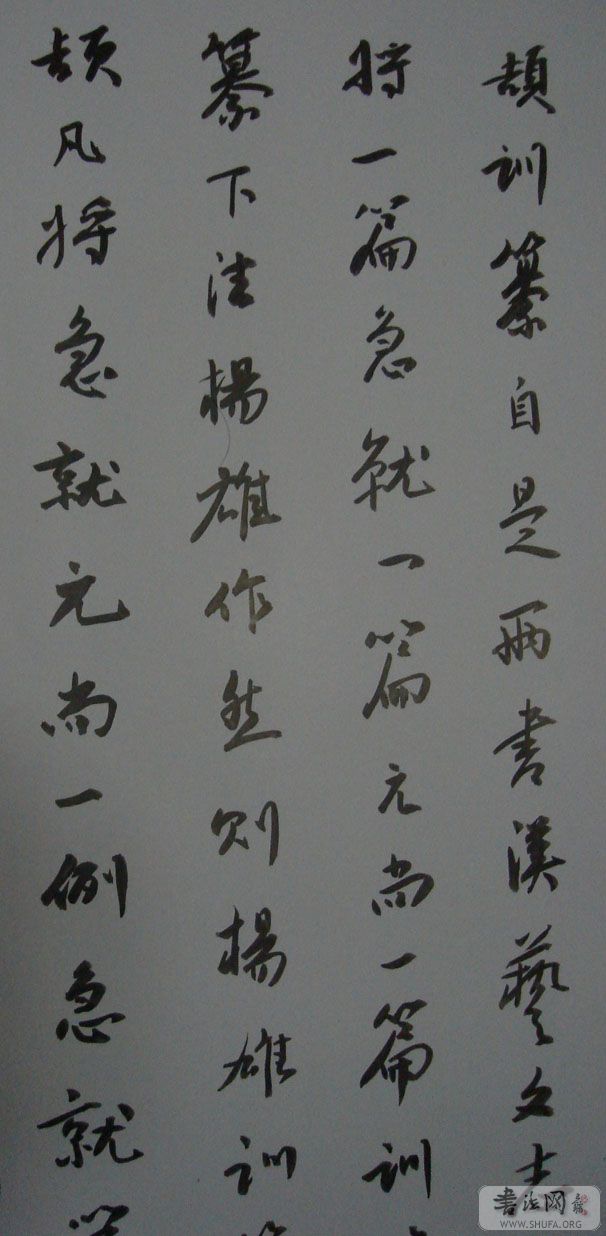 頡訓纂自是兩書漢藝文志
將一篇急就一篇元尚一篇訓
纂下注楊雄作然則楊雄訓
頡凡將急就元尚一例急就
书法网
WWW.SHUFA.ORG